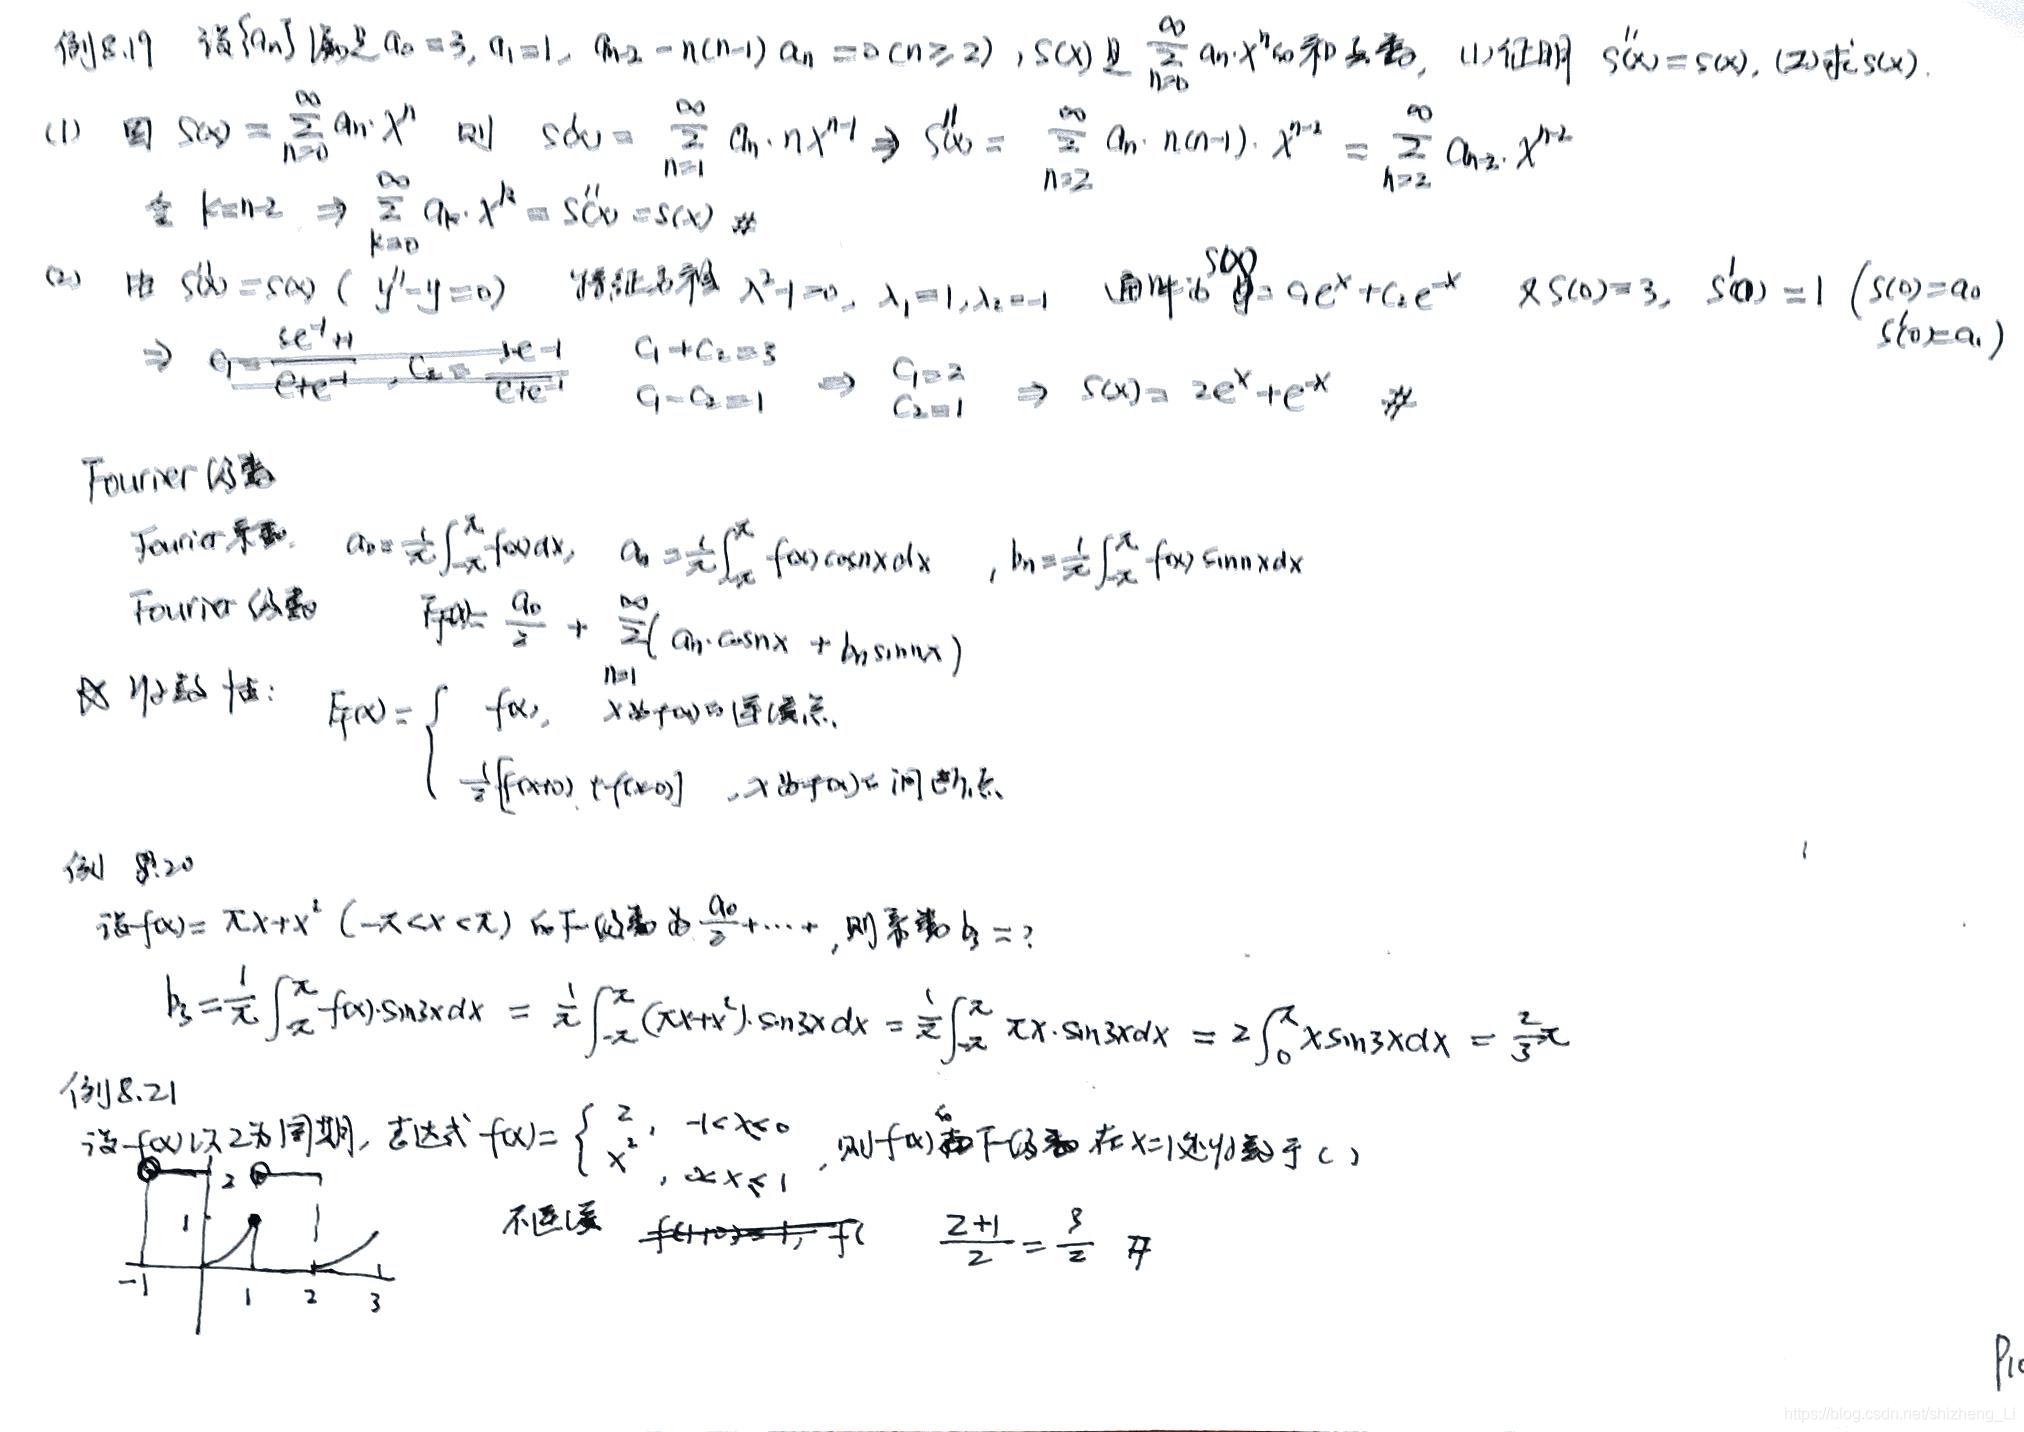 例8.19 设{an}满足a₀=3, a₁=1, aₙ₋₂-n(n-1)aₙ=0(n≥2), S(x)是∑(n=0→∞)aₙ·xⁿ的和函数, (1)证明 S''(x)=S(x), (2)求S(x).
(1) 因 S(x)=∑(n=0→∞)aₙ·xⁿ 则 S'(x)=∑(n=1→∞)aₙ·nxⁿ⁻¹ ⇒ S''(x)=∑(n=2→∞)aₙ·n(n-1)·xⁿ⁻²=∑(n=2→∞)aₙ₋₂·xⁿ⁻²
令 k=n-2 ⇒ ∑(k=0→∞)aₖ·xᵏ=S''(x)=S(x) #
(2) 由 S''(x)=S(x) (y''-y=0) 特征方程 λ²-1=0, λ₁=1, λ₂=-1 通解为 S(x)=C₁eˣ+C₂e⁻ˣ 又S(0)=3, S'(0)=1 (S(0)=a₀
S'(0)=a₁)
⇒ C₁+C₂=3 C₁-C₂=1 ⇒ C₁=2 C₂=1 ⇒ S(x)=2eˣ+e⁻ˣ #
Fourier 级数
Fourier系数. a₀=1/π∫(-π→π)f(x)dx, aₙ=1/π∫(-π→π)f(x)cosnxdx, bₙ=1/π∫(-π→π)f(x)sinnxdx
Fourier 级数 F_f(x)=a₀/2+∑(n=1→∞)(aₙ·cosnx+bₙsinnx)
☆ 收敛性: F_f(x)={ f(x), x为f(x)的连续点.
1/2[f(x+0)+f(x-0)], x为f(x)的间断点
例 8.20
设f(x)=πx+x² (-π<x<π) 的F级数为a₀/2+…+, 则系数b₃=?
b₃=1/π∫(-π→π)f(x)·sin3xdx=1/π∫(-π→π)(πx+x²)·sin3xdx=1/π∫(-π→π)πx·sin3xdx=2∫(0→π)xsin3xdx=2/3π
例8.21
设f(x)以2为周期, 表达式 f(x)={ 2, -1<x≤0 x², 0<x≤1, 则f(x)的F级数在x=1处收敛于( )
2
1 不连续 (2+1)/2=3/2 #
-1 1 2 3
P10
https://blog.csdn.net/shizheng_Li